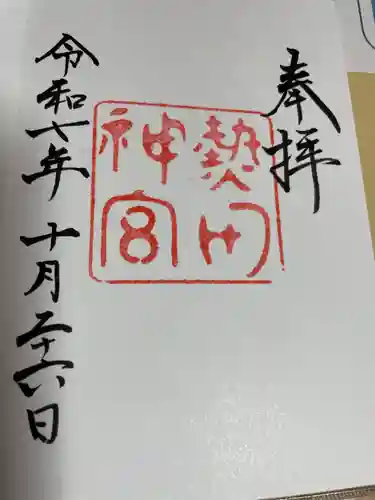 奉拝
熱田
神宮
令和六年十月二十六日